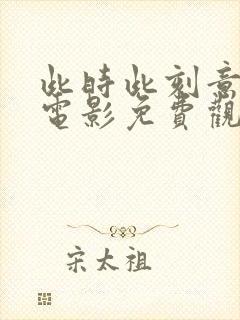 此時此刻意
電影免費觀
宋太祖